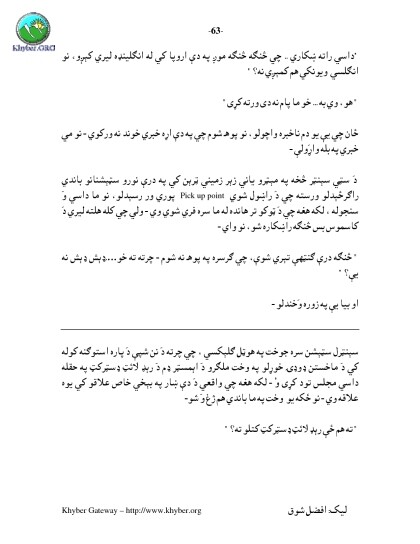 -63-
Khyber.ORG
"داسې راته ښکاري .. چې څنګه څنګه موږ په دې اروپا کې له انګلينډه ليرې کېږو، نو
انګلسي ويونکي هم کمېږي نه؟"
"هو، وي به.. خو ما پام نه دی ورته کړی"
ځان چې يې يو دم ناخبره واچولو، نو پوهـ شوم چې په دې اړه خبرې خوند نه ورکوي - نو مې
خبرې په بله واړولې -
دَ سټي سېنټر څخه په مېټرو يانې زېر زميني ټرېن کې په درې نورو سټېشنانو باندې
راګرځېدلو ورسته چې دَ راښول شوي Pick up point پورې ور رسېدلو، نو ما داسې وَ
سنجوله، لکه هغه چې دَ ټوکو تر هانده له ما سره فري شوې وي - ولې چې کله هلته ليرې دَ
کاسموس بس څنګه راښکاره شو، نو واي -
"څنګه درې ګنټهې تېرې شوې، چې ګرسره په پوهـ نه شوم - چرته ته خو....ډېش ډېش نه
يې؟"
او بيا يې په زوره وَخندلو -
سېنټرل سټېشن سره جوخت په هوټل ګلېکسي، چې چرته دَ نن شپې دَ پاره استوګنه کوله
کې دَ ماخستن ډوډۍ خوړلو په وخت ملګرو دَ اېمسټر ډم دَ رېډ لائټ ډسټرکټ په حقله
داسې مجلس تود کړی وٗ - لکه هغه چې واقعي دَ دې ښار په بېخې خاص علاقو کې يوه
علاقه وي - نو ځکه يو وخت په ما باندې هم ږغ وَ شو -
"ته هم ځې رېډ لائټ ډسټرکټ کتلو ته؟"
Khyber Gateway – http://www.khyber.org
ليک: افضل شوق